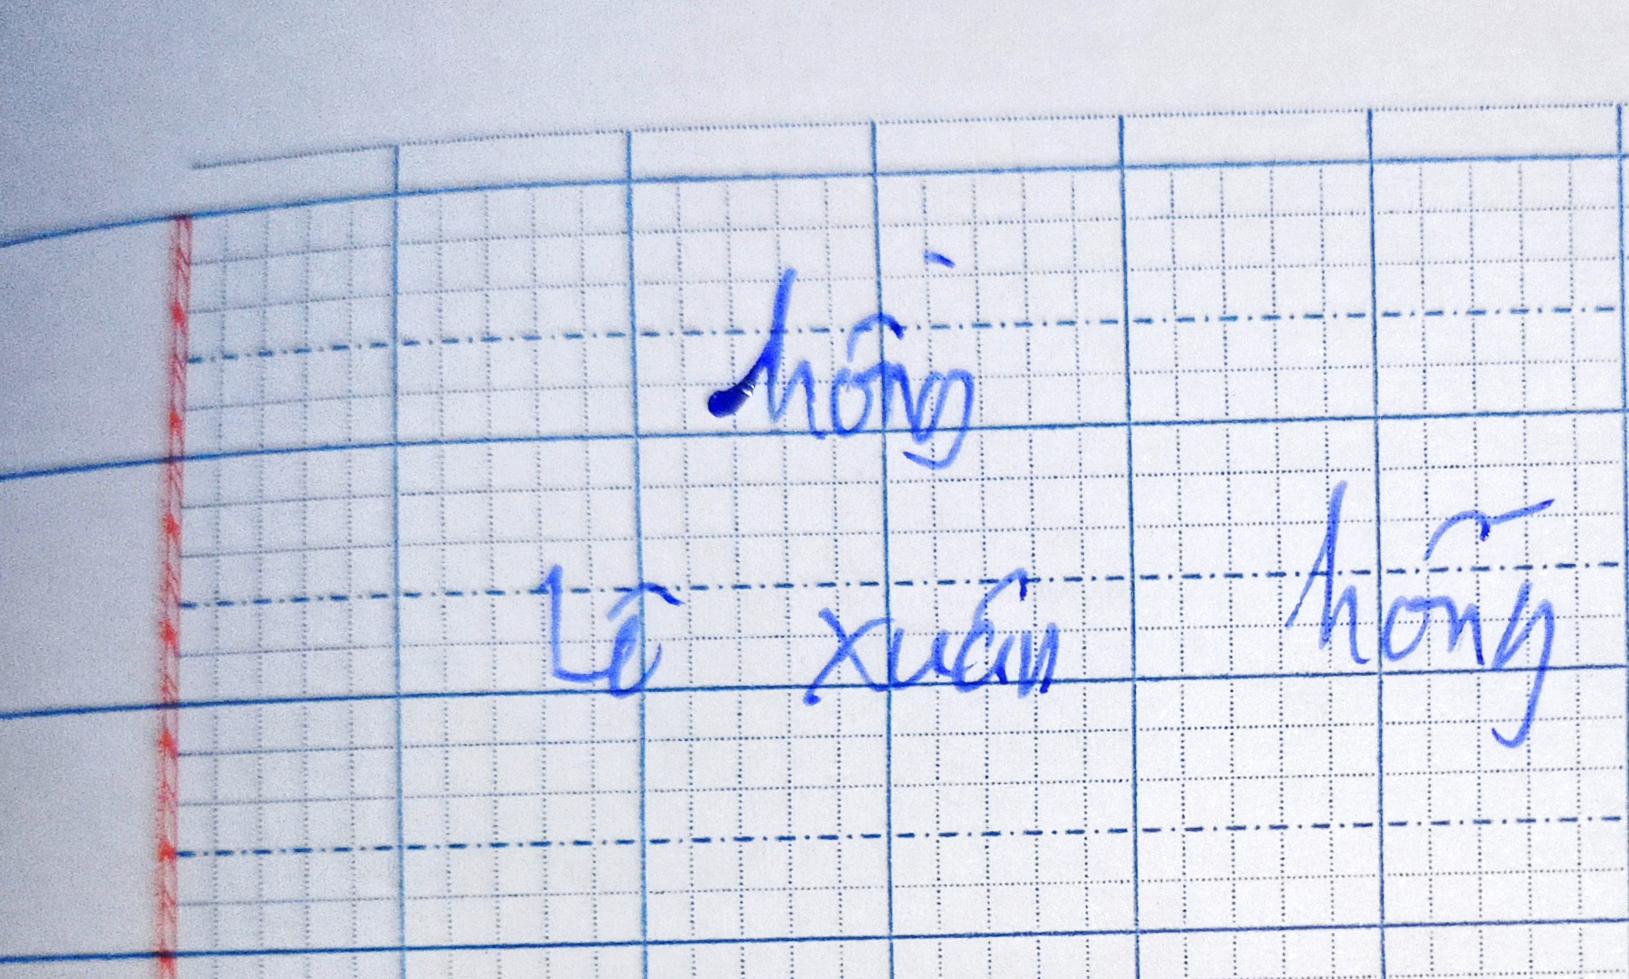 hồng
Lê xuân hồng